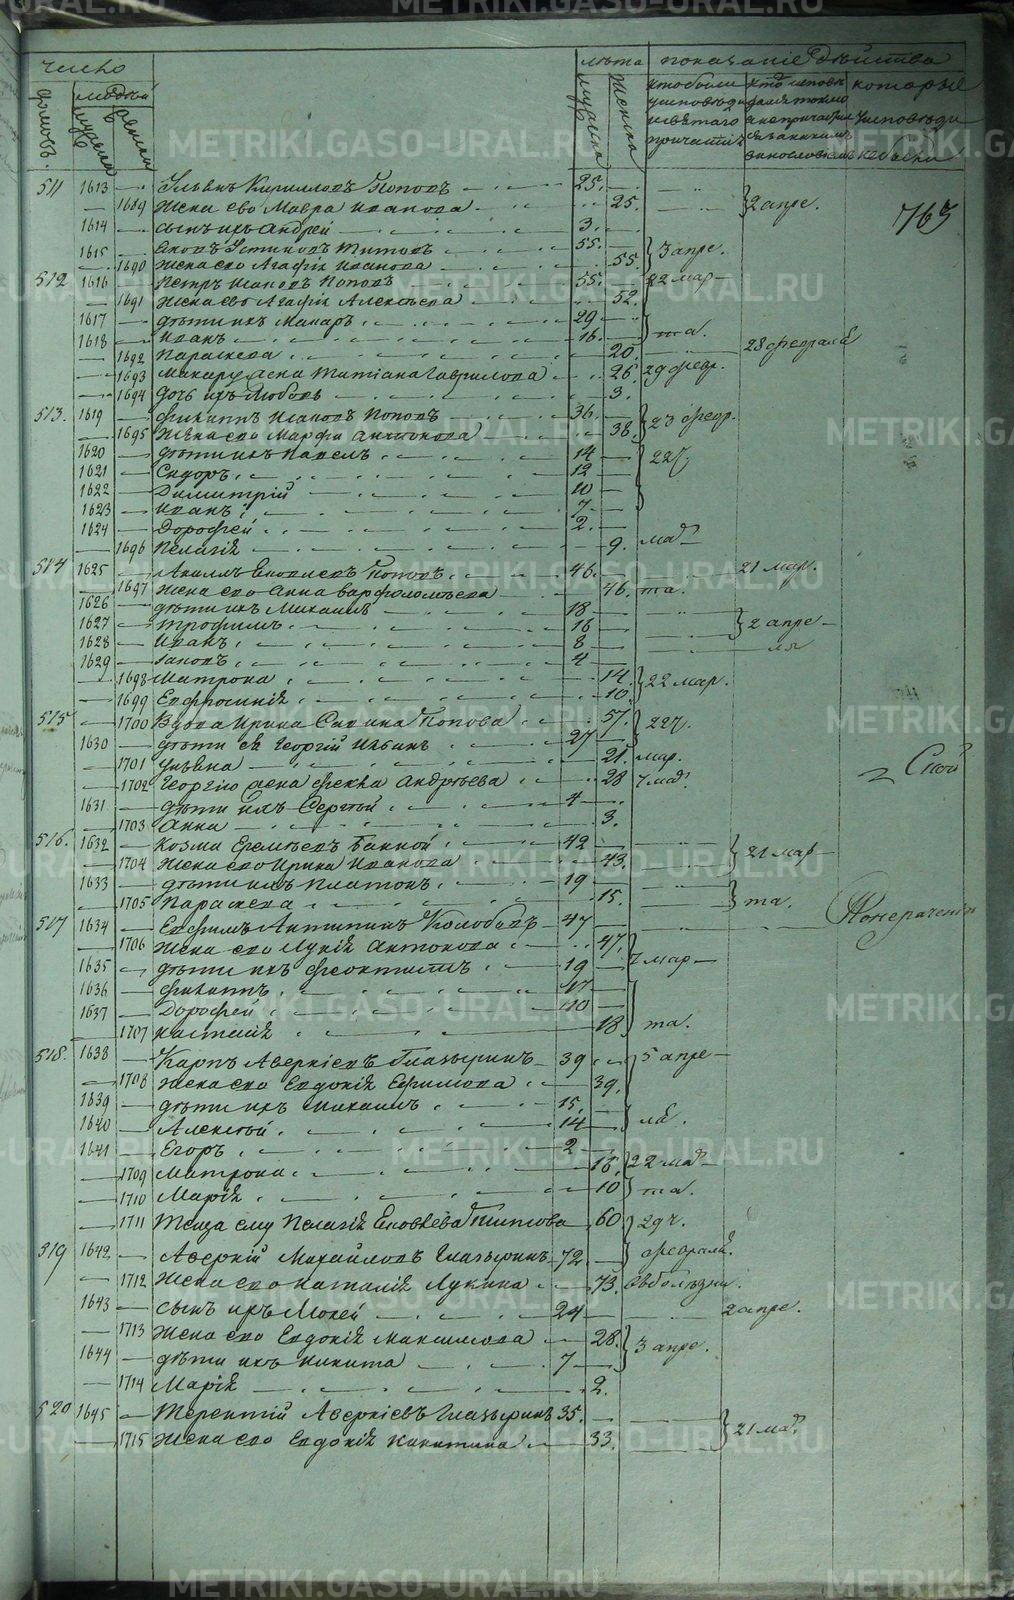 число
лѣта
показаніе дѣйства
домовъ
людей
мужска
женска
мужска
женска
кто были
у исповѣди
и святаго
причастія
кто исповѣ
дался токмо
а не причастил
ся
которые
у исповѣди
не были
763
511 1613 — Ульянъ Кириловъ Поповъ 25.
1689 Жена его Мавра Иванова 25. 2 апре.
1614 — сынъ ихъ Андрей 3.
1615 — Яковъ Устиновъ Титовъ 55. 3 апре.
1690 Жена его Агафія Иванова 55.
512 1616 — Петръ Ивановъ Поповъ 55. 22 мар
1691 Жена его Агафія Алексѣева 52.
1617 — дѣти ихъ Макаръ 29 та.
1618 — Иванъ 16.
1692 Параскева 20. 28 февраля
1693 Макару жена Татіана Гаврилова 26. 29 февр.
1694 дочь ихъ Любовь 3.
513. 1619 — Филиппъ Ивановъ Поповъ 36. 23 февр.
1695 Жена его Марфа Антонова 38.
1620 — дѣти ихъ Павелъ 14
1621 — Сидоръ 12
1622 — Димитрій 10
1623 — Иванъ 7
1624 — Дорофей 2.
1696 Пелагія 9.
514 1625 — 46. 21 мар.
1697 Жена его Анна Варфоломѣева 46. та.
1626 — дѣти ихъ Михаилъ 18
1627 — Трофимъ 16 2 апре
1628 — Иванъ 8 ля
1629 — Іаковъ 4
1698 Матрона 14. 22 мар.
1699 Евфросинія 10
515 1700 Вдова Ирина Савина Попова 57.
1630 — дѣти ея Георгій Ильинъ 27
1701 Ульяна 21. мар.
1702 Георгію жена Фекла Андрѣева 28
1631 — дѣти ихъ Сергѣй 4
1703 Анна 3.
516. 1632 — Козма Еремѣевъ Банной 42 21 мар
1704 Жена его Ирина Иванова 43.
1633 — дѣти ихъ Платонъ 19 та.
1705 Параскева 15.
517 1634 — Ефимъ Антипинъ Колобовъ 47
1706 Жена его Лукія Антонова 47. мар
1635 — дѣти ихъ Феоктистъ 19
1636 — Филиппъ 17
1637 — Дорофей 10
1707 Настасія 18 та.
518. 1638 — Карпъ Аверкіевъ Глазыринъ 39 5 апре
1708 Жена его Евдокія Ефимова 39.
1639 — дѣти ихъ Михаилъ 15.
1640 — Алексѣй 14
1641 — Егоръ 2
1709 Матрона 16. 22 мар
1710 Марія 10 та.
1711 Теща ему Пелагія Яковлева Титова 60 29 ч.
519 1642 — Аверкій Михайловъ Глазыринъ 72 февраля.
1712 Жена его Наталія Лукина 73. въ болѣзни.
1643 — сынъ ихъ Мокей 24 2 апре.
1713 Жена его Евдокія Максимова 28. 3 апре.
1644 — дѣти ихъ Никита 7
1714 Марія 2.
520 1645 — Терентій Аверкіевъ Глазыринъ 35. 21 мар
1715 Жена его Евдокія Никитина 33.
METRIKI.GASO-URAL.RU